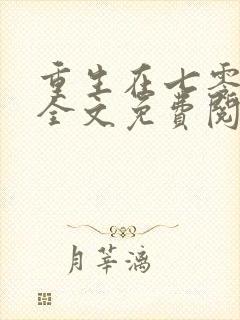 重生在七零
全文免费阅
月莘漓